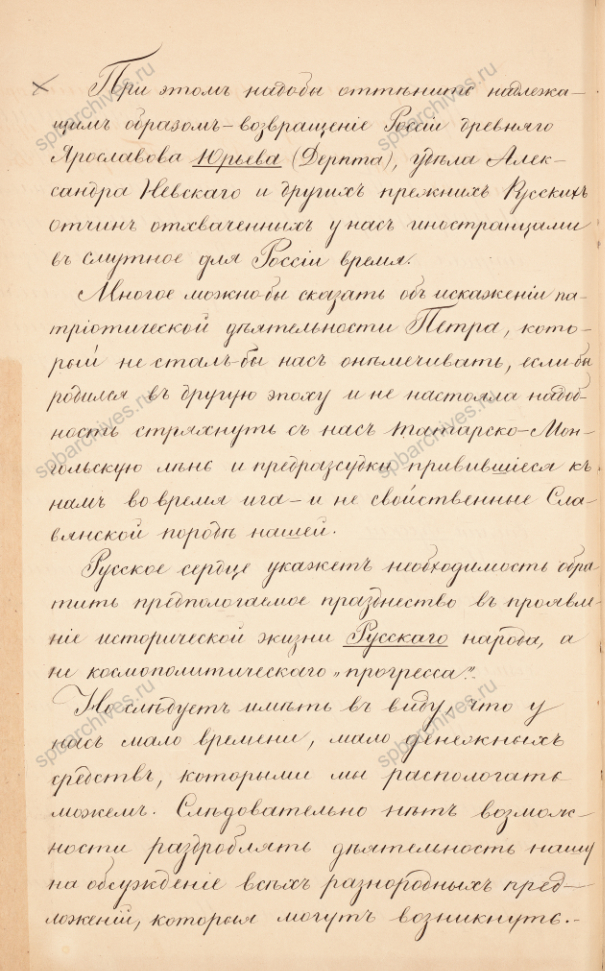 При этомъ надобы оттѣнить надлежа-
щимъ образомъ – возвращеніе Россіи древняго
Ярославова Юрьева (Дерпта), удѣла Алек-
сандра Невскаго и другихъ прежнихъ Русскихъ
отчинъ отхваченныхъ у насъ иностранцами
въ смутное для Россіи время.
Многое можно-бы сказать объ искаженіи па-
тріотической дѣятельности Петра, кото-
рый не сталъ-бы насъ онѣмечивать, если бы
родился въ другую эпоху и не настояла надоб-
ность стряхнуть съ насъ татарско-Мон-
гольскую лѣнь и предразсудки, привившіеся къ
намъ во время ига – и не свойственные Сла-
вянской породѣ нашей.
Русское сердце укажетъ необходимость обра
тить предпологаемое празднество въ проявле
ніе исторической жизни Русскаго народа, а
не космополитическаго „прогресса".
Но слѣдуетъ имѣть въ виду, что у
насъ мало времени, мало денежныхъ
средствъ, которыми мы распологать
можемъ. Слѣдовательно нѣтъ возмож-
ности раздроблять дѣятельность нашу
на обсужденіе всѣхъ разнородныхъ пред-
ложеній, которыя могутъ возникнуть. –
spbarchives.ru
spbarchives.ru
spbarchives.ru
spbarchives.ru
spbarchives.ru
spbarchives.ru